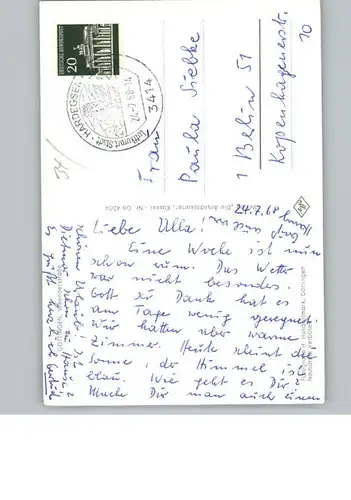 DEUTSCHE BUNDESPOST
20
HARDEGSEN
Luftkurort Stadt
24.-7.68-14
3414
Frau
Paula Siebke
1 Berlin 51
Kopenhagenerstr.
10
24.7.68
Liebe Ulla!
Eine Woche ist nun
schon rum. Das Wetter
war nicht besonders.
Gott sei Dank hat es
am Tage wenig geregnet.
Wir hatten aber warme
Zimmer. Heute scheint die
Sonne, der Himmel ist
blau. Wie geht es Dir?
Mache Dir man auch einen
schönen Urlaub! Ist
Dietmar schon zu Hause?
Es grüßt herzlich